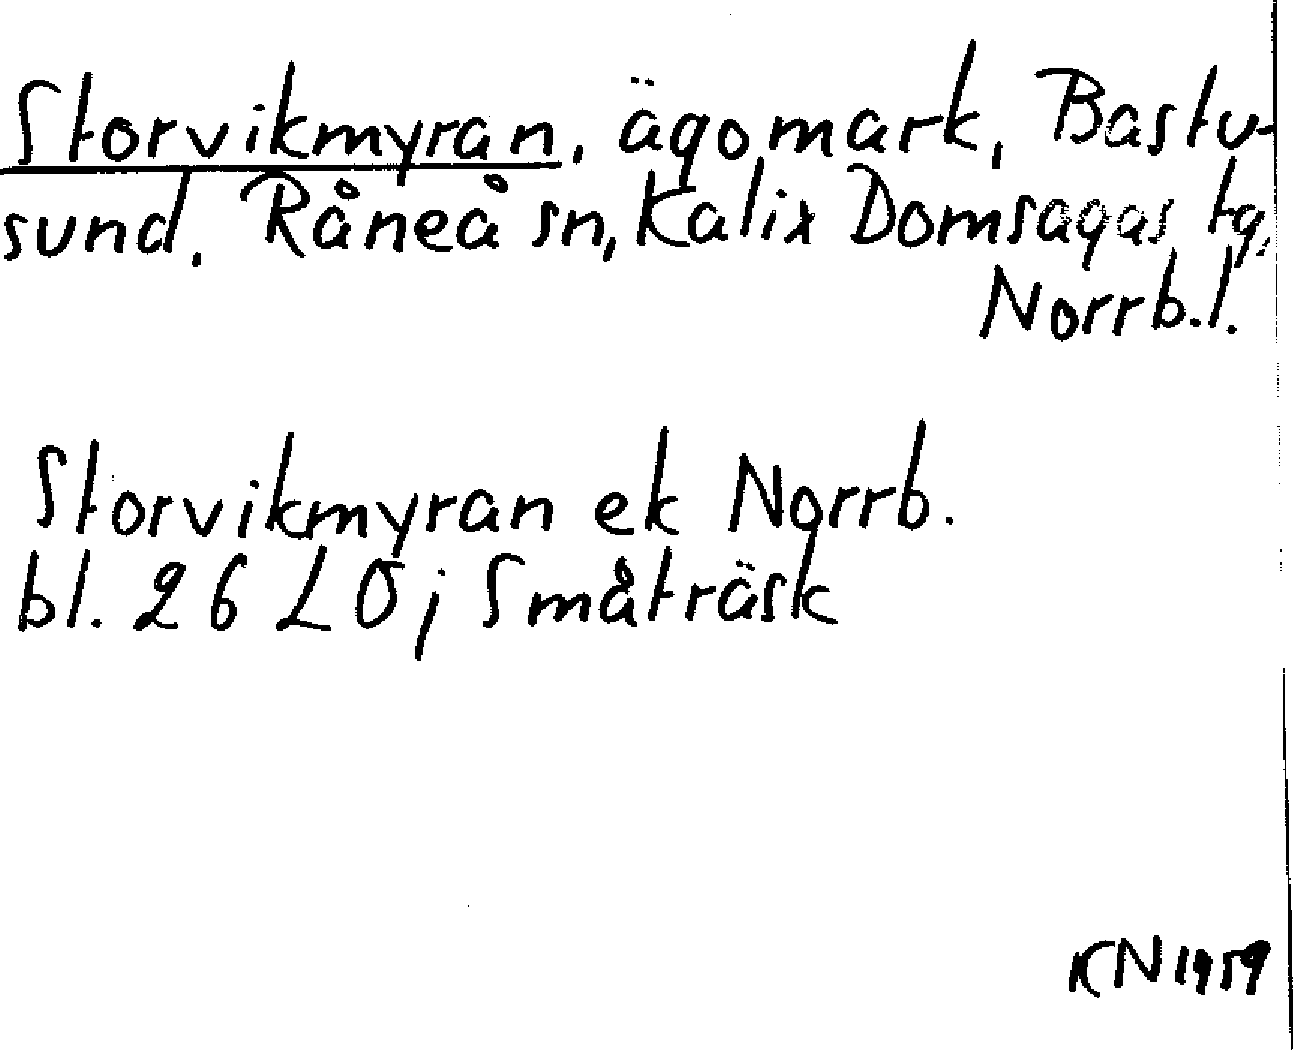 Storvikmyran, ägomark, Bastu-
sund. Råneå sn, Kalix Domsagas tg,
Norrb.l.
Storvikmyran ek Norrb.
bl. 26 LO; Småträsk
KN 1959